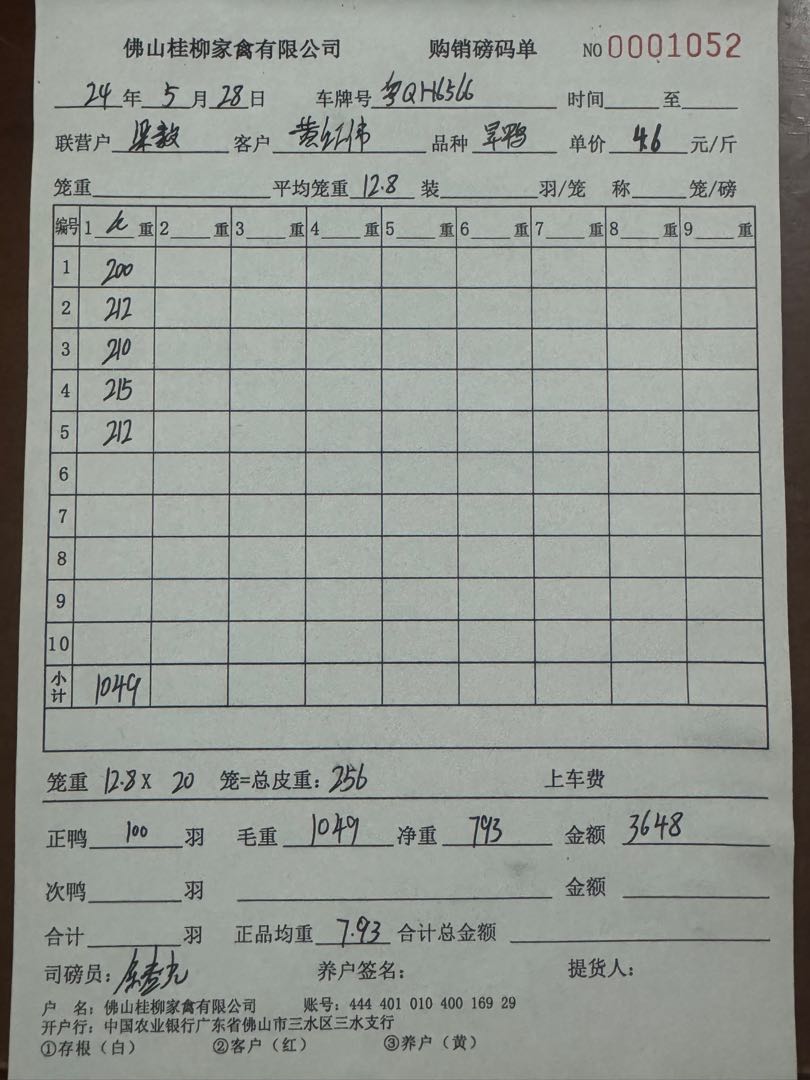 佛山桂柳家禽有限公司 购销磅码单 NO 0001052
24 年 5 月 28 日 车牌号 粤QH6566 时间 至
联营户 梁毅 客户 黄红伟 品种 旱鸭 单价 4.6 元/斤
笼重 平均笼重 12.8 装 羽/笼 称 笼/磅
编号 1 重 2 重 3 重 4 重 5 重 6 重 7 重 8 重 9 重
1 200
2 212
3 210
4 215
5 212
6
7
8
9
10
小计 1049
笼重 12.8 X 20 笼=总皮重: 256 上车费
正鸭 100 羽 毛重 1049 净重 793 金额 3648
次鸭 羽 金额
合计 羽 正品均重 7.93 合计总金额
司磅员: 养户签名: 提货人:
户 名: 佛山桂柳家禽有限公司 账号: 444 401 010 400 169 29
开户行: 中国农业银行广东省佛山市三水区三水支行
①存根（白） ②客户（红） ③养户（黄）